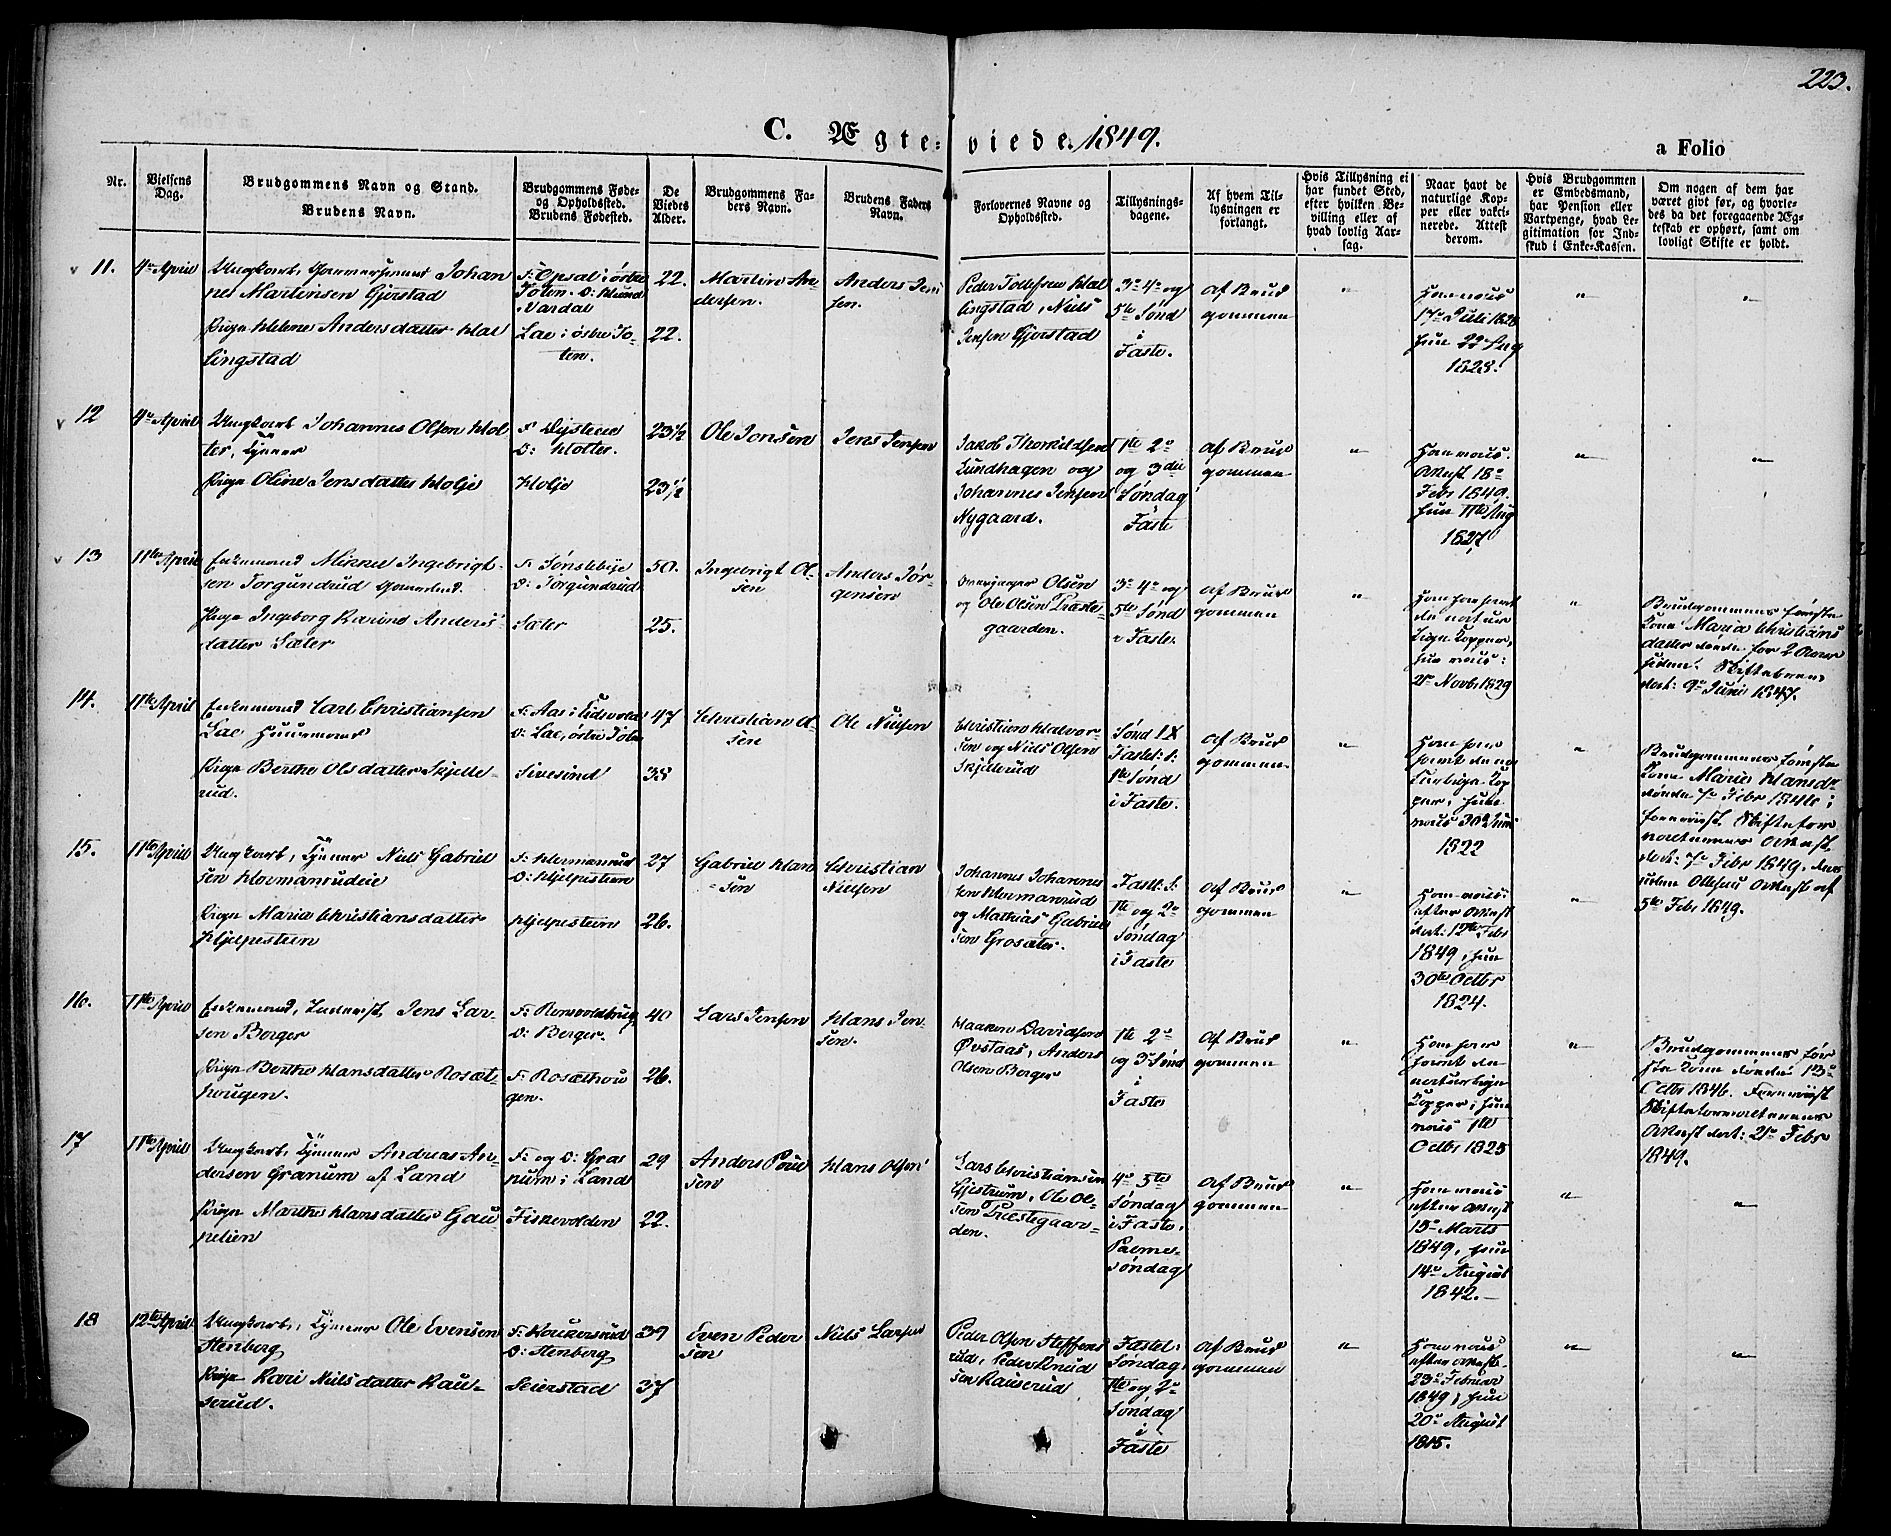 223.
C. Ægte-viede. 1849.
a Folio
Nr.
Vielsens Dag.
Brudgommens Navn og Stand.
Brudens Navn.
Brudgommens Føde- og Opholdsted.
Brudens Fødested.
De Viedes Alder.
Brudgommens Faders Navn.
Brudens Faders Navn.
Forlovernes Navne og Opholdssted.
Tillysnings-dagene.
Af hvem Tillysningen er forlangt.
Hvis Tillysning ei har fundet Sted, efter hvilken Bevilling eller af hvad lovlig Aarsag.
Naar havt de naturlige Kopper eller vakcinerede. Attest derom.
Hvis Brudgommen er Embedsmand, har Pension eller Vartpenge, hvad Legitimation for Indskud i Enke-Kassen.
Om nogen af dem har været givt før, og hvorledes da det foregaaende Ægteskab er ophørt, samt om lovligt Skifte er holdt.
11. 4de April Ungkarl, Johan
nes Martinsen Gjerstad
Pige Helene Andersdatter Hal
lingstad
F: Opsal i østre
Toten. O: Hlund
i Vardal
Lae i østre To-
ten.
22.
22.
Martin An
dersen.
Anders Jen
sen.
Peder Tollefsen Hal
lingstad, Niels
Jensen Gjerstad
3de 4de og
5te Sønd
i
Faste.
af Brud
gommen
"
Ham vacc.
17de Juli 1828
hun 22 Aug
1828.
"
"
12 4de April Ungkarl Johannes Olsen Hol
ter, Tjener
Pige Oline Jensdatter Holje
O: Holter.
Holje
23½
23½
Ole Jonsen
Jens Jensen
Jakob Thorkildsen
Lundhagen og
Johannes Jensen
Nygaard.
1ste 2de
og 3die
Søndag
Faste
af Brud
gommen
"
Ham vacc.
Attest 18de
Febr 1849.
hun 11te Aug
1827
"
"
13 11te April Enkemand Mikkel Ingebrigt-
sen Torgundrud
Pige Ingeborg Karine Anders-
datter Sæter
F: Tønslebye
O: Torgundrud
Sæter
50.
25.
Ingebrigt Ol-
sen
Anders Jør-
gensen
Olsen
og Ole Olsen Præste-
gaarden.
3de 4de og
5te Sønd
i Faste.
af Brud
gommen
"
Ham har havt
de natur
lige Kopper,
hun vacc:
2de Novbr 1829
"
Brudgommens første
Kone Maria Christians
datter døde for 2 Aar
siden. Skiftebrev
dat: 9de Juni 1847.
14. 11te April Enkemand Carl Christiansen
Lae Huusmand
Pige Berthe Olsdatter Skjelle-
rud.
F: Aas i Eidsvold
O: Lae, østre Toten
Sivesind
47
38
Christian Ol-
sen
Ole Nielsen
Christian Halvor-
sen og Niels Olsen
Skjellerud
Sønd IX
Fastel: S:
1ste Sønd
i Faste.
af Brud
gommen.
"
Ham har
havt de na
turlige Kop
per, hun
vacc 30 Juni
1822
"
Brudgommens første
Kone Marie Hansdr
døde 7de Febr 1846;
foreviist Skiftefor
valterens Attest
dat: 7de Febr 1849,
5te Febr 1849.
15. 11te April Ungkarl, Tjener Niels Gabriel
sen Hormanrudeie
Pige Maria Christiansdatter
Hjelpesteen
F: Hermanrud
O: Hjelpesteen
Hjelpesteen
27
26.
Gabriel Han
sen
Christian
Nielsen
Johannes Johannes
sen Hormanrud
og Mathias Gabriel
sen Grosæter.
Fastl: S:
1ste og 2de
Søndag
i Faste
af Brud
gommen
"
Ham vacc.
efter Attest
dat: 12te Febr
1849, hun
30te Octbr
1824.
"
16. 11te April Enkemand, Jens Lar-
sen Berger
Pige Berthe Hansdatter Rosæt-
hougen.
O: Berger.
F: Rosæthou
gen.
40
26.
Lars Jensen
Hans Jen-
sen.
Haaken Davidsen
Øvstaas, Anders
Olsen Berger
1ste 2de
og 3 Sønd
i
Faste
af Brud
gommen
"
Ham har
havt de
naturlige
Kopper, hun
vacc 1ste
Octbr 1825
"
Brudgommens før
ste Kone døde 13de
Octbr 1846. Foreviist
Skifteforvalterens
Attest dat: 2de Febr
1849.
17 11te April Ungkarl, Tjener Andreas An-
dersen Granum af Land
Pige Marthe Hansdatter Gau-
pelien
F: og O: Gra
num i Land
Fiskevolden
29
22.
Anders Poul
sen
Hans Olsen
Lars Christiansen
Gjistrum, Ole Ol-
sen Præstegaar-
den.
4de 5te
Søndag
i Faste.
Palme-
søndag
af Brud
gommen
"
Ham vacc
efter Attest
15de Marts
1849, hun
14de August
1842.
"
"
18 12te April Ungkarl, Tjener Ole Evensen
Stenberg
Pige Kari Nielsdatter Rau-
serud.
F: Houkersrud
O: Stenberg
Seierstad
39
37
Even Peder
sen
Niels Larsen
Peder Olsen Steffens
rud, Peder Knud
sen Rauserud
Fastel:
Søndag,
1ste og 2de
Søndag
i
Faste
af Brud
gommen
"
Ham vacc
efter Attest
23de Februar
1849, hun
20de August
1815.
"
"